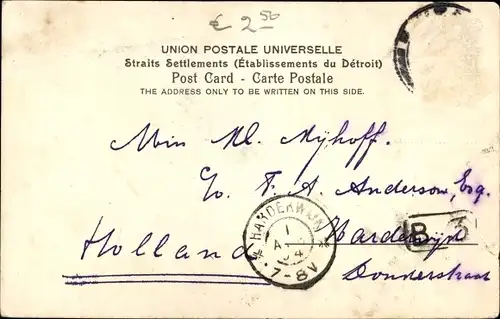 € 2,50
UNION POSTALE UNIVERSELLE
Straits Settlements (Établissements du Détroit)
Post Card - Carte Postale
THE ADDRESS ONLY TO BE WRITTEN ON THIS SIDE.
Miss Nl. Nyhoff.
c/o F. A. Anderson, Esq.
Harderwijk
Donderstraat
Holland
HARDERWIJK
1
A
04
7-8V
B